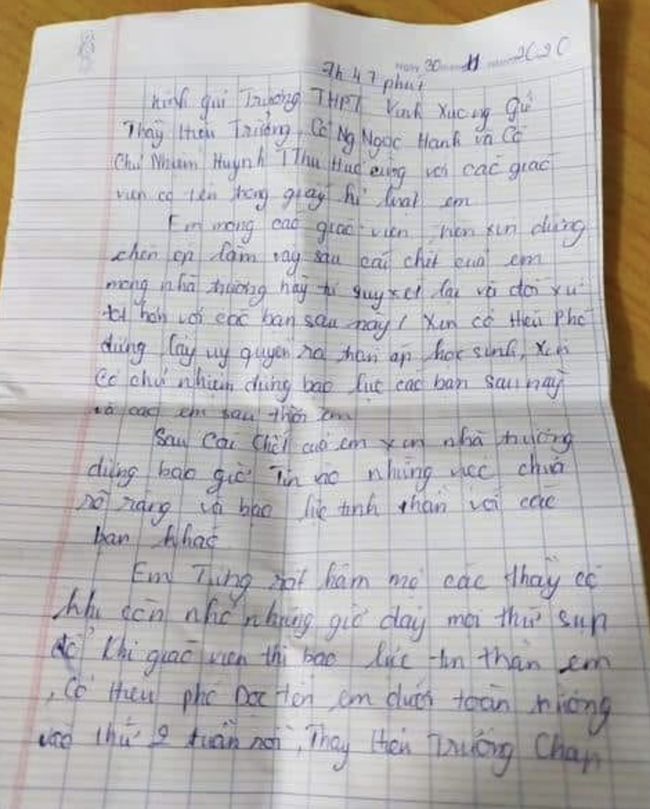 7h 47 phút Ngày 30 11 2020
Kính gửi Trường THPT Vĩnh Xương Gửi
Thầy Hiệu Trưởng, Cô Ng Ngọc Hạnh và Cô
Chủ Nhiệm Huỳnh T Thu Huệ cùng với các giáo
viên có tên trong giấy kỉ luật em
Em mong các giáo viên nên xin đừng
chèn ép lắm vậy sau cái chết của em
mong nhà trường hãy suy xét lại và đối xử
tốt hơn với các bạn sau này! Xin cô Hiệu Phó
đừng lấy uy quyền ra chèn ép học sinh, xin
cô chủ nhiệm đừng bạo lực các bạn sau này
và các em sau thời em
Sau cái chết của em xin nhà trường
đừng bao giờ những việc chưa
rõ ràng và bạo lực tinh thần với các
bạn khác
Em Từng rất hâm mộ các thầy cô
khi còn nhỏ nhưng giờ đây mọi thứ sụp
đổ khi giáo viên thì bạo lực tin thần em
, Cô Hiệu phó Đọc tên em dưới toàn trường
vào thứ 2 tuần rồi, Thầy Hiệu Trưởng Chấp